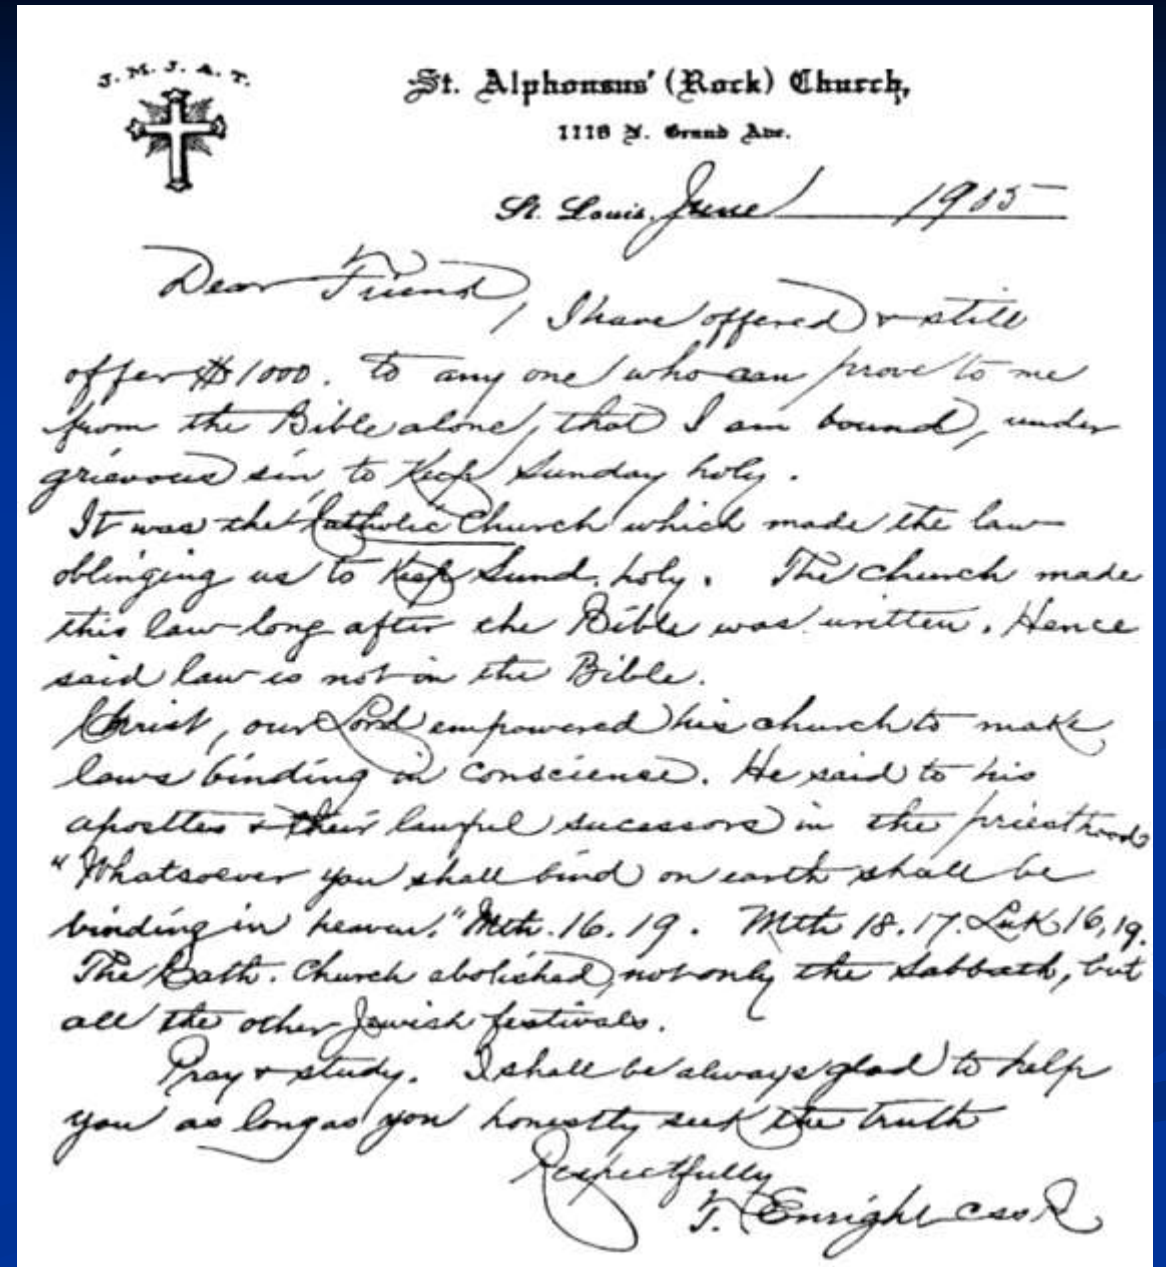 J. M. J. A. T.
St. Alphonsus' (Rock) Church,
1118 N. Grand Ave.
St. Louis, June 1905
Dear Friend,
I have offered & still
offer $1000. to any one who can prove to me
from the Bible alone, that I am bound, under
grievous sin, to Keep Sunday holy.
It was the Catholic Church which made the law
oblinging us to Keep Sund. holy. The church made
this law long after the Bible was written. Hence
said law is not in the Bible.
Christ, our Lord empowered his church to make
laws binding in consciense. He said to his
apostles & their lawful sucessors in the priesthood
"Whatsoever you shall bind on earth shall be
binding in heaven." Mth. 16. 19. Mth 18. 17. Luk 16, 19.
The Cath. Church abolished not only the Sabbath, but
all the other Jewish festivals.
Pray & study. I shall be always glad to help
you as long as you honestly seek the truth
Respectfully
T. Enright CSSR